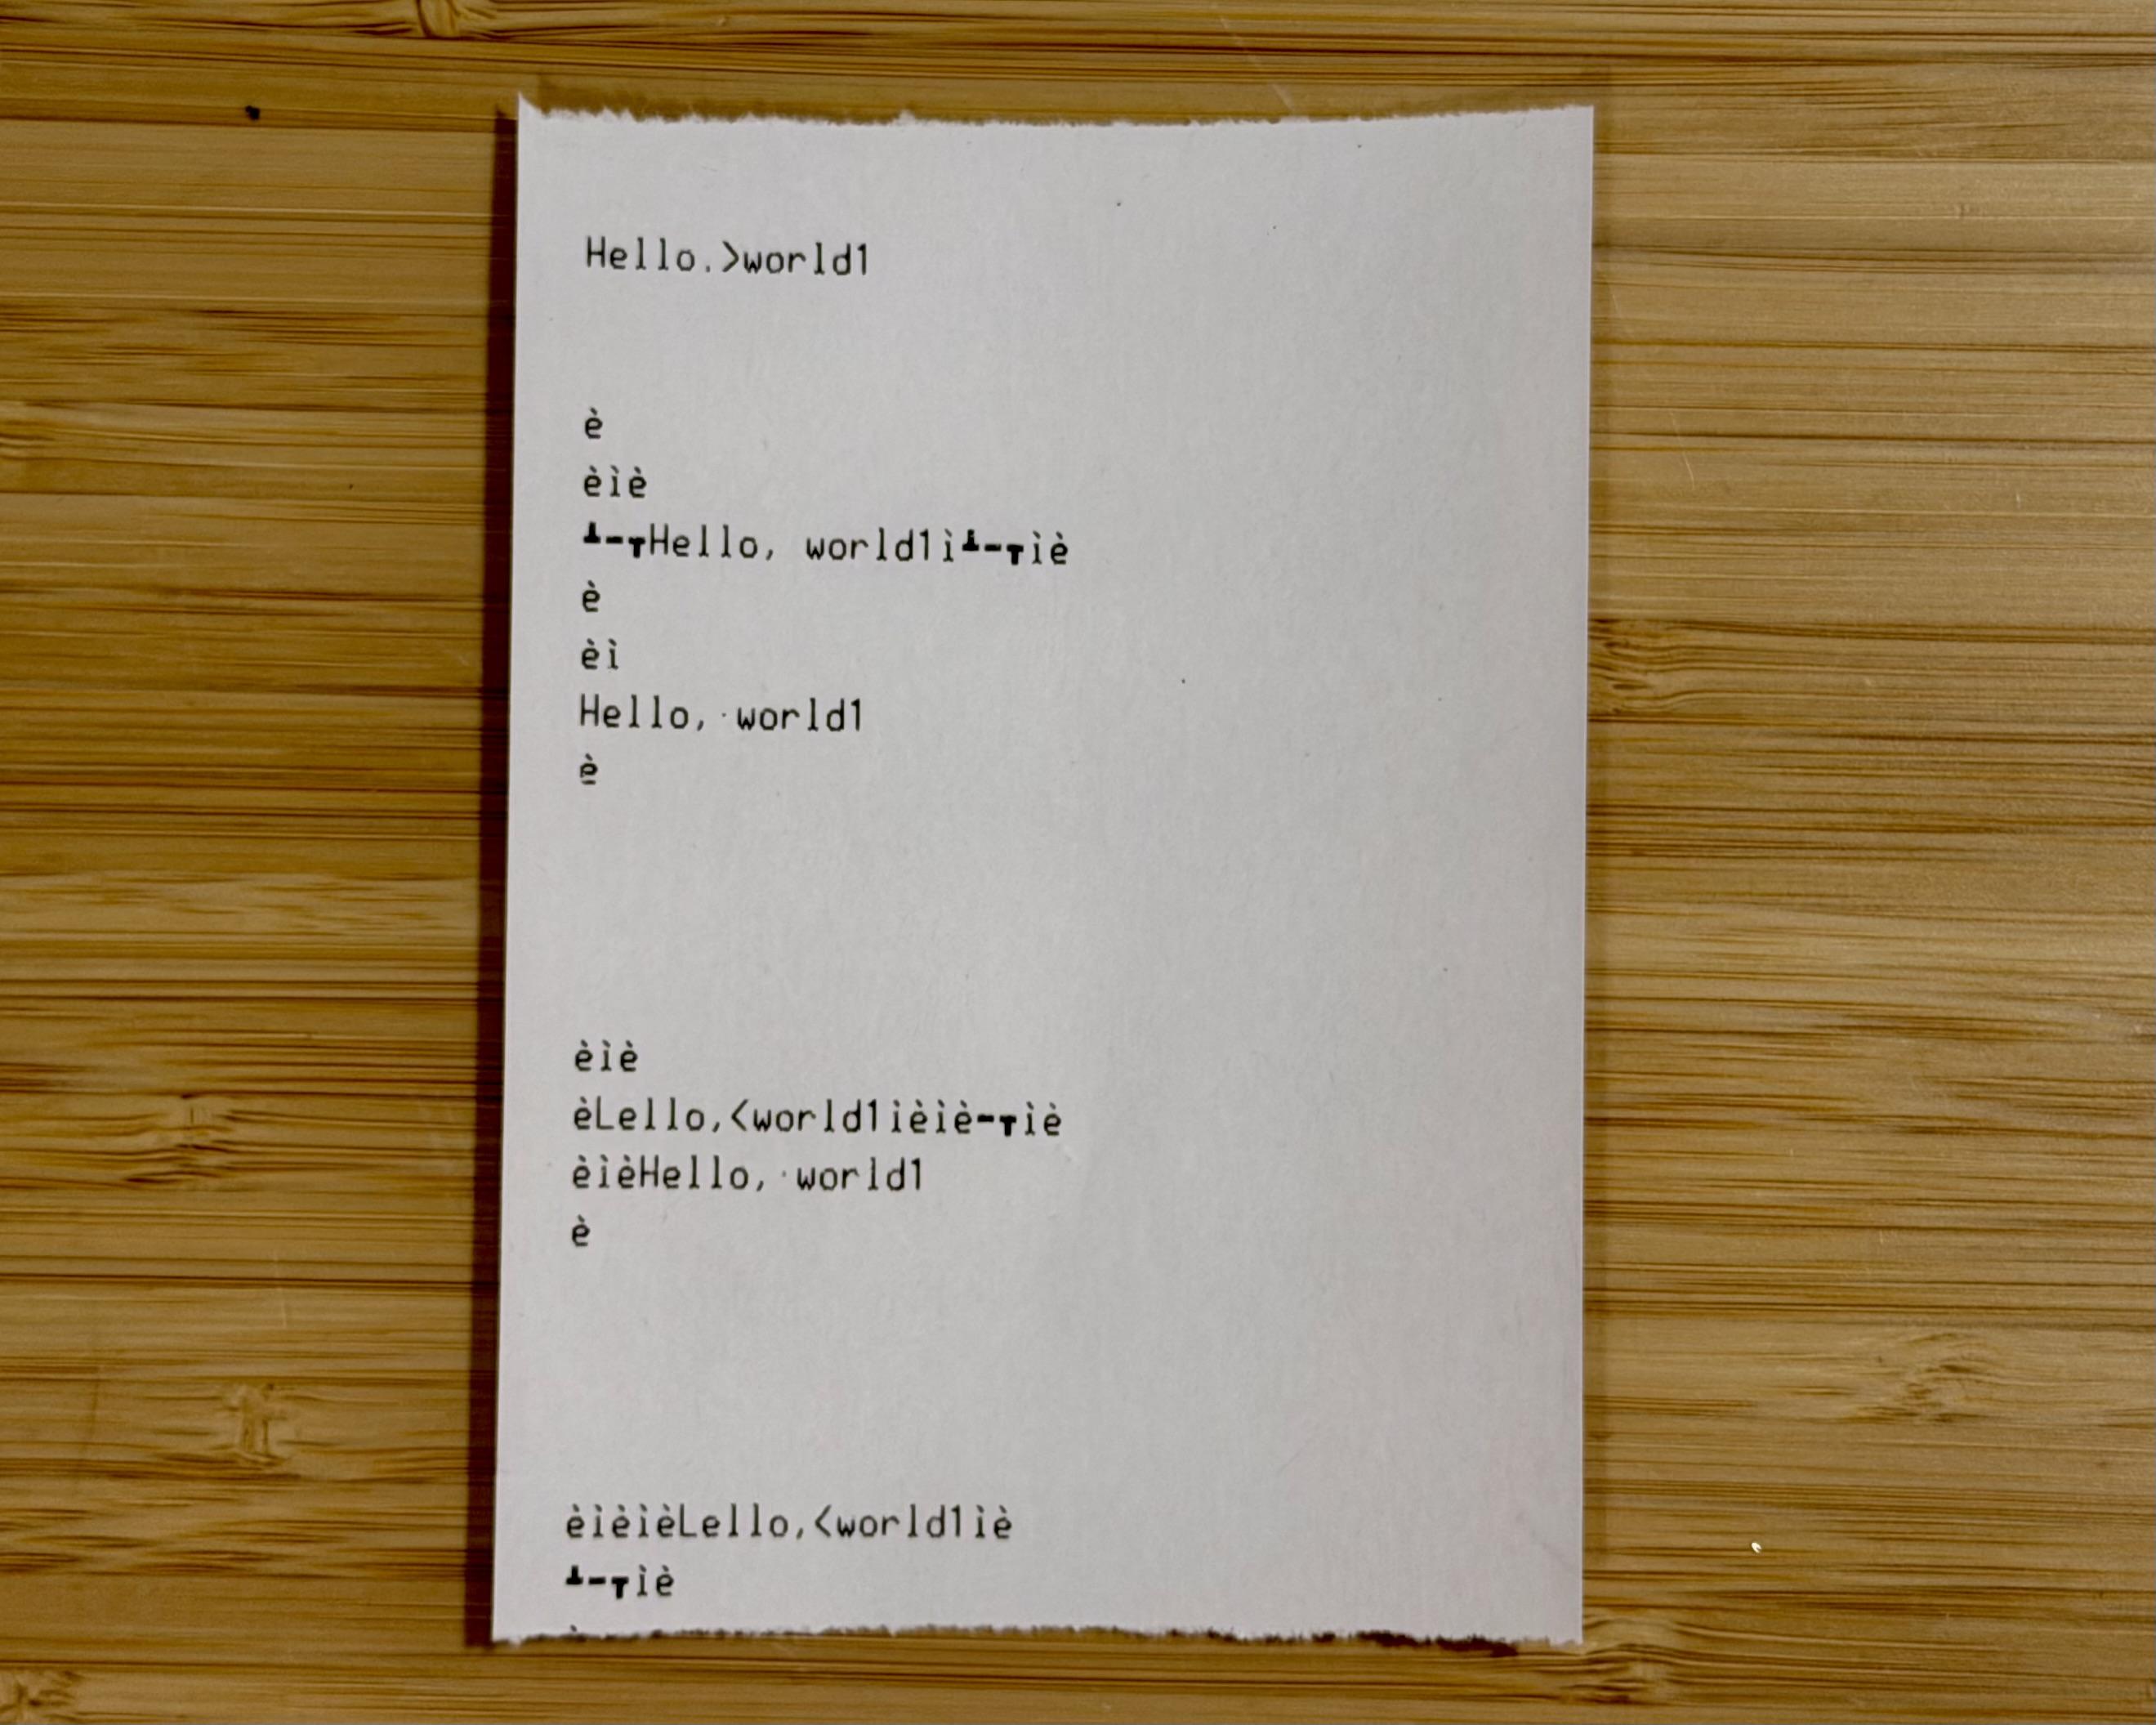 Hello.>world1
è
èìè
┻━┳Hello, world1ì┻━┳ìè
è
èì
Hello, ·world1
è
èìè
èLello,<world1ìèìè━┳ìè
èìèHello, ·world1
è
èìèìèLello,<world1ìè
┻━┳ìè